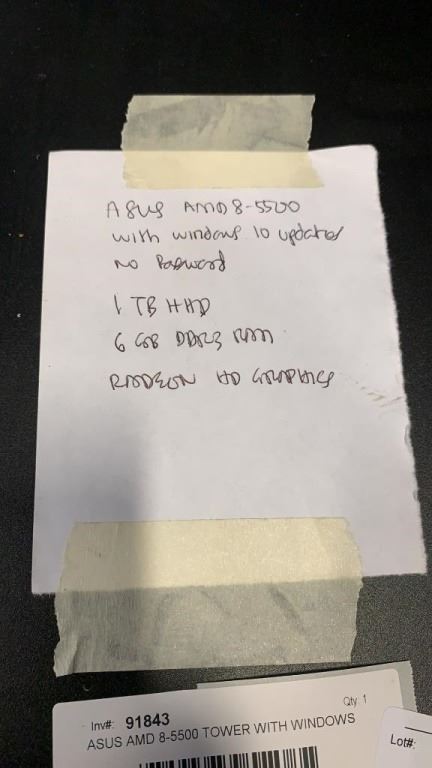 ASUS AMD 8-5500
with windows 10 updated
No Password
1 TB HHD
6 GB DDR3 RAM
RADEON HD GRAPHICS
Inv#: 91843
Qty: 1
ASUS AMD 8-5500 TOWER WITH WINDOWS
Lot#: